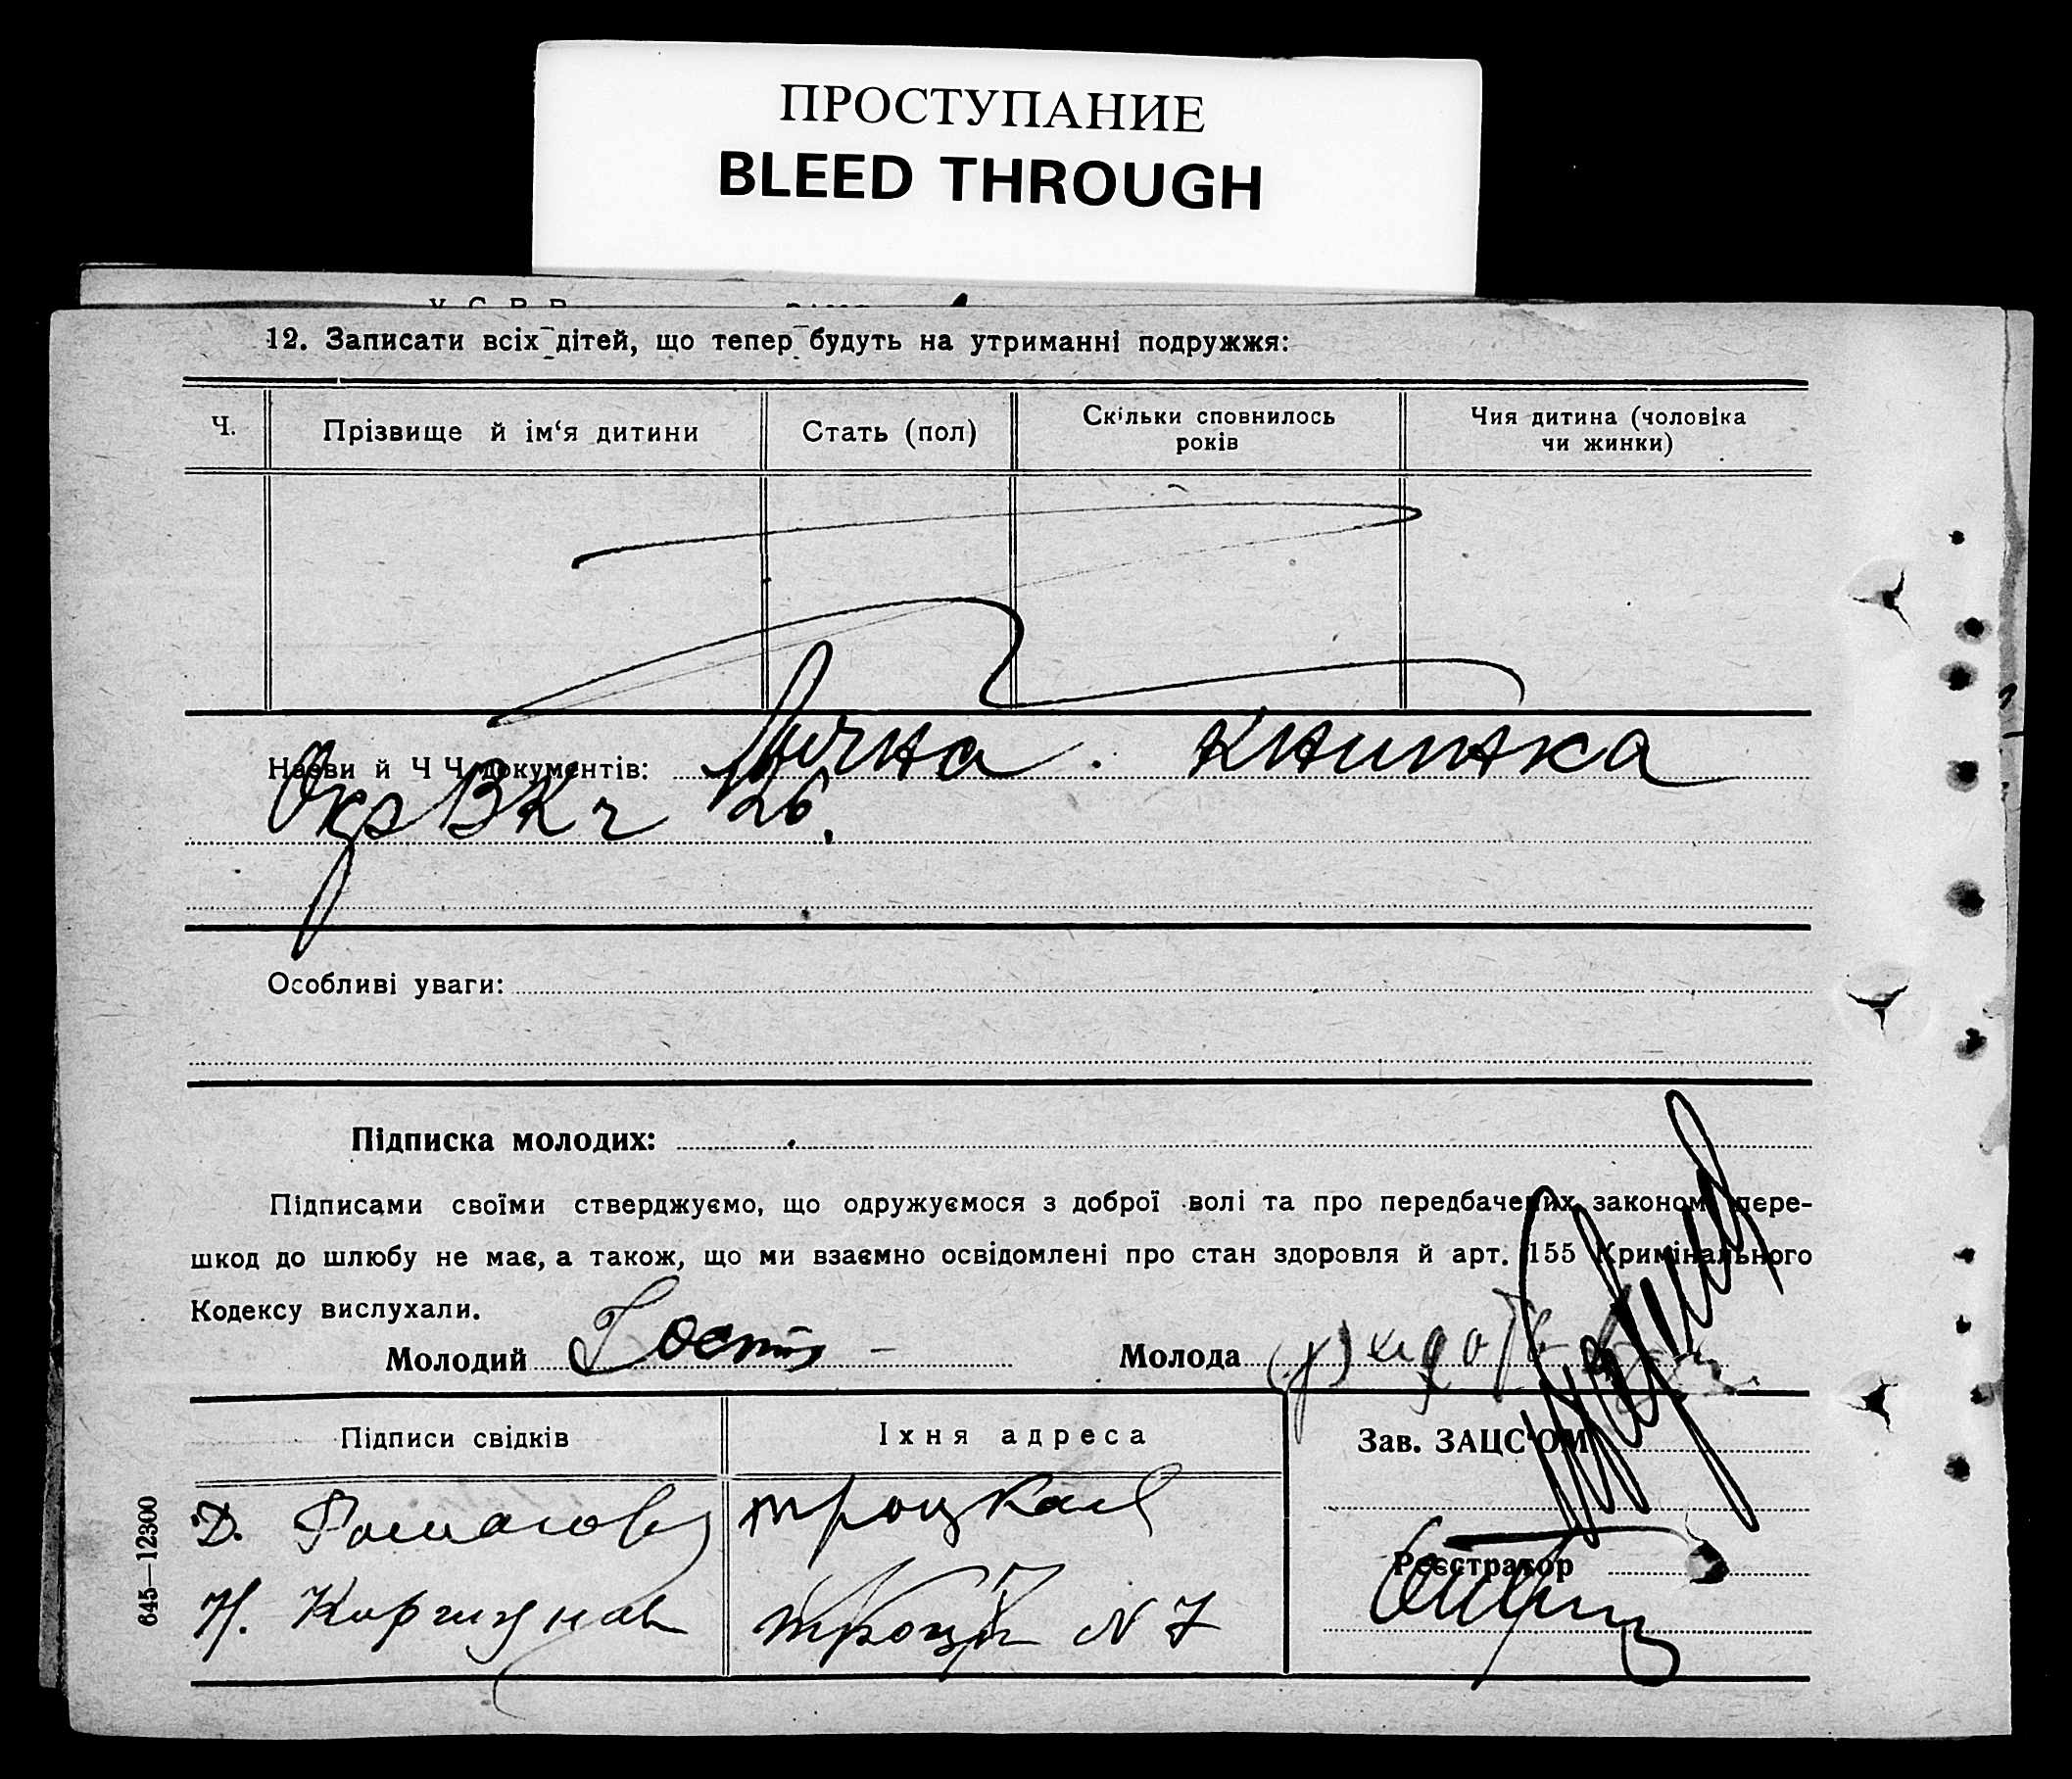 ПРОСТУПАНИЕ
BLEED THROUGH
У С Р Р
12. Записати всіх дітей, що тепер будуть на утриманні подружжя:
Ч.
Прізвище й ім‘я дитини
Стать (пол)
Скільки сповнилось
років
Чия дитина (чоловіка
чи жинки)
Назви й Ч Ч документів: книжка
ОкрВК ч 126.
Особливі уваги:
Підписка молодих:
Підписами своїми стверджуємо, що одружуємося з доброї волі та про передбачених законом пере-
шкод до шлюбу не має, а також, що ми взаємно освідомлені про стан здоровля й арт. 155 Кримінального
Кодексу вислухали.
Молодий
Молода
Підписи свідків
Їхня адреса
Зав. ЗАЦС‘ОМ
Д. троцкая
Реєстратор
Н. N 7
645—12300